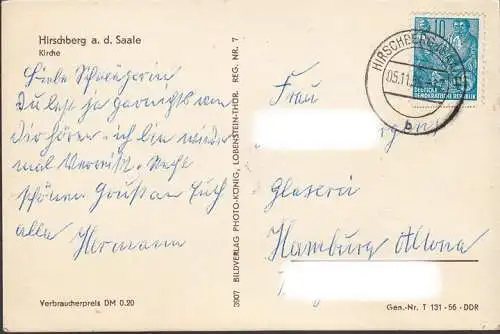 Hirschberg a. d. Saale
Kirche
Liebe Schwägerin
Du läst ja garnichts von
Dir hören. ich bin wieder
mal verreist. Recht
schönen Gruß an Euch
alle Hermann
Verbraucherpreis DM 0.20
3907 BILDVERLAG PHOTO-KÖNIG, LOBENSTEIN-THÜR. REG. NR. 7
HIRSCHBERG
05.11.
b
10
DEUTSCHE
DEMOKRATISCHE REPUBLIK
Frau
Glaserei
Hamburg Altona
Gen.-Nr. T 131 - 56 - DDR